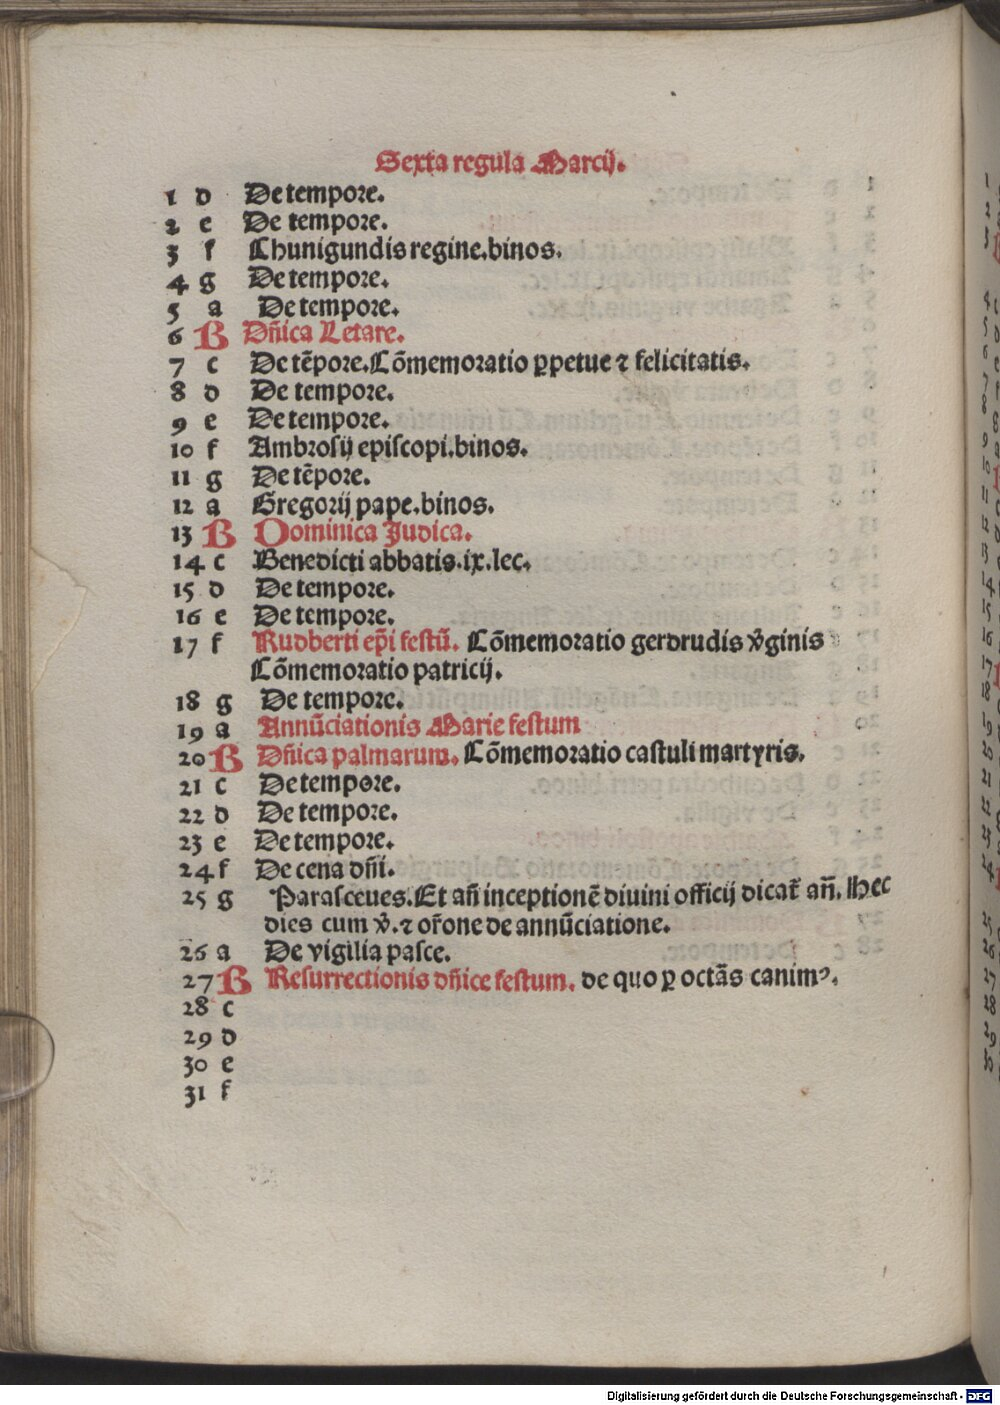 Sexta regula Marcij.
1 d De tempore.
2 e De tempore.
3 f Chunigundis regine.binos.
4 g De tempore.
5 a De tempore.
6 B Dn̄ica Letare.
7 c De tēpore.Cōmemoratio ꝑpetue ⁊ felicitatis.
8 d De tempore.
9 e De tempore.
10 f Ambrosij episcopi.binos.
11 g De tēpore.
12 a Gregorij pape.binos.
13 B Dominica Judica.
14 c Benedicti abbatis.ix.lec.
15 d De tempore.
16 e De tempore.
17 f Rudberti ep̄i festū. Cōmemoratio gerdrudis v̄ginis
Cōmemoratio patricij.
18 g De tempore.
19 a Annūciationis Marie festum
20 B Dn̄ica palmarum. Cōmemoratio castuli martyris.
21 c De tempore.
22 d De tempore.
23 e De tempore.
24 f De cena dn̄i.
25 g Parasceues.Et an̄ inceptionē diuini officij dicat̄ an̄. Hec
dies cum v̄.⁊ or̄one de annūciatione.
26 a De vigilia pasce.
27 B Resurrectionis dn̄ice festum. de quo ꝑ octās canimꝰ.
28 c
29 d
30 e
31 f
Digitalisierung gefördert durch die Deutsche Forschungsgemeinschaft - DFG